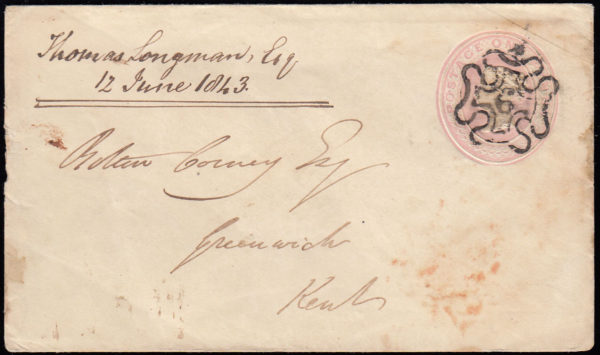 Thomas Longman, Esq
12 June 1843.
POSTAGE O
6
Bolton Corney Esq
Greenwich
Kent